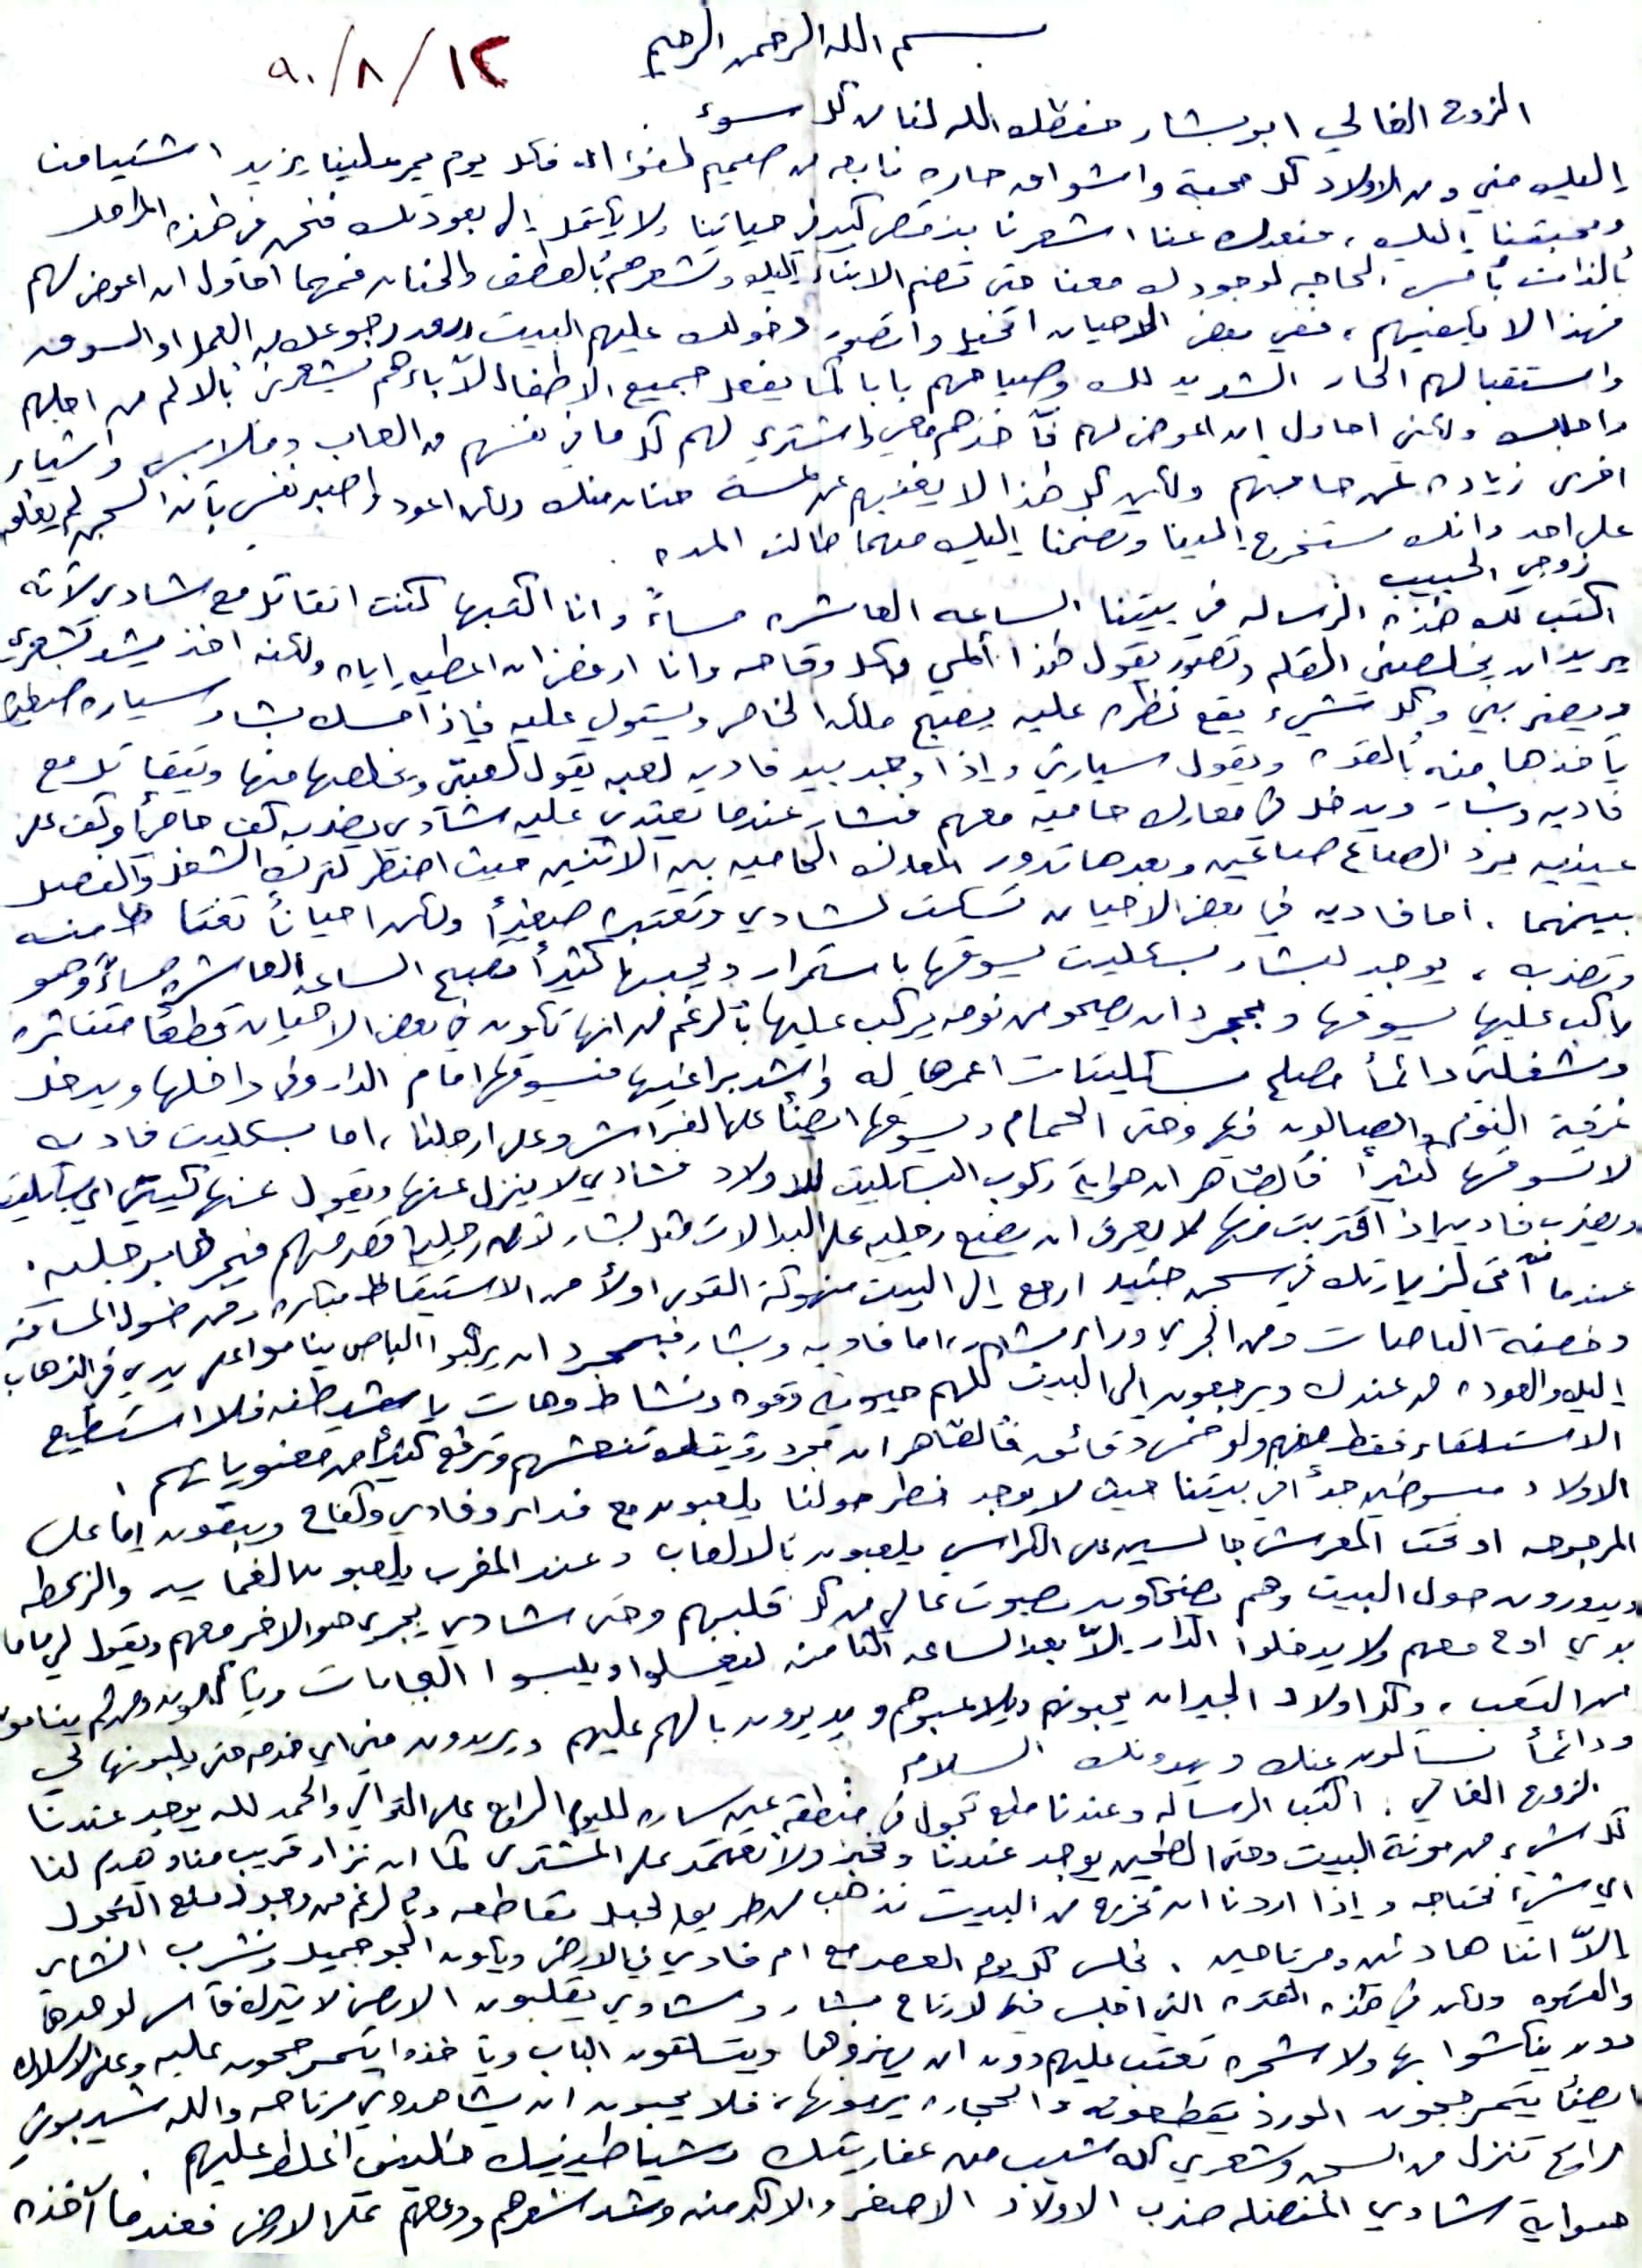 بسم الله الرحمن الرحيم
١٢/٨/٩٠
الزوج الغالي ابو بشار حفظك الله لنا من كل سوء
إليك مني ومن الاولاد كل محبة واشواق حاره نابعه من صميم الفؤاد فكل يوم يمر علينا يزيد اشتياقنا
ومحبتنا إليك، فبعدك عنا اشعرنا بنقص كبير في حياتنا ولا يكتمل إلا بعودتك فنحن في هذه المراحل
بالذات بأمس الحاجه لوجودك معنا حتى تضم الابناء إليك وتشعرهم بالعطف والحنان فمهما احاول ان اعوض لهم
فهذا لا يكفيهم، ففي بعض الاحيان اتخيل واتصور دخولك عليهم البيت رجوعك من العمل او السوق
واستقبالهم الحار الشديد لك وصياحهم بابا كما يفعل جميع الاطفال لآباءهم بالالم من اجلهم
واجلك ولكني احاول ان اعوض لهم فآخذهم معي واشتري لهم كل ما في نفسهم من العاب وملابس واشياء
اخرى زياده عن حاجتهم ولكن كل هذا لا يغنيهم عن لمسة حنان منك ولكن اعود واصبر نفسي بأن السجن لم يغلق
على احد وانك ستخرج إلينا وتضمنا إليك مهما طالت المده.
زوجي الحبيب
اكتب لك هذه الرساله في بيتنا الساعه العاشره مساءً وانا اكتبها كنت اتقاتل مع شادي لأنه
يريد ان يخلصني القلم وتصور يقول هذا ألمي وبكل وقاحه وانا ارفض ان اعطيه إياه ولكنه اخذ يشد بشعري
ويضربني وكل شيء يقع نظره عليه يصبح ملكه الخاص ويستولي عليه فإذا امسك بشار سياره صغيره
يأخذها منه بالقوه ويقول سيارتي وإذا وجد بيد فاديه لعبه يقول لعبتي ويخلصها منها ويتقاتل مع
فاديه وبشار ويدخل في معارك حاميه معهم فبشار عندما يعتدي عليه شادي يضربه كف حامي وكف على
عينيه يرد الصاع صاعين وبعدها تدور المعارك الحاميه بين الاثنين حيث اضطر لترك الشغل والفصل
بينهما. اما فاديه في بعض الاحيان تسكت لشادي وتعتبره صغيراً ولكن احياناً تغتاظ منه
وتضربه، يوجد لبشار بسكليت يسوقها باستمرار ويحبها كثيراً فتصبح الساعه العاشره مساءً وهو
راكب عليها يسوقها وبمجرد ان يصحو من نومه يركب عليها بالرغم من انها تكون في بعض الاحيان قطعاً متناثره
وشغلتي دائماً مصلح بسكليتات اعمرها له واشد براغيها فيسوقها امام الدار وفي داخلها ويدخل
غرفة النوم والصالون فيها وحتى الحمام ويسوقها ايضاً على الفراش وعلى ارجلنا، اما بسكليت فاديه
لا تسوقها كثيراً فالظاهر ان هواية ركوب البسكليت للاولاد فشادي لا ينزل عنها ويقول عنها كيتي اي بسكليت
ويضرب فاديه إذا اقتربت منها لا يعرف ان يضع رجليه على البدالات مثل بشار لان رجليه قصر منهم فيجرها برجليه.
عندما آتي لزيارتك في سجن جنيد ارجع إلى البيت منهوكة القوى اولاً من الاستيقاظ مبكره ومن طول المسافه
وخضة الباصات ومن الجري وراء بشار، اما فاديه وبشار فبمجرد ان يركبوا الباص يناموا على يدي في الذهاب
إليك والعوده من عندك ويرجعون إلى البيت كلهم حيويه وقوه ونشاط وهات يا شيطنه فلا استطيع
الاستلقاء فقط ولو خمس دقائق فالظاهر ان مجرد رؤيتك تنعشهم وترفع كثيراً من معنوياتهم.
الاولاد مبسوطين جداً في بيتنا حيث لا يوجد خطر حولنا يلعبون مع فداء وفادي وكفاح ويبقون إما على
المرجوحه او تحت المعرش جالسين على الكراسي يلعبون بالالعاب وعند المغرب يلعبون الغمايه والزحطه
ويدورون حول البيت وهم يضحكون بصوت عالي من كل قلبهم وحتى شادي يجري هو الاخر معهم ويقول لي ماما
بدي اوح معهم ولا يدخلوا الدار إلاّ بعد الساعه الثامنه ليغسلوا ويلبسوا البجامات ويأكلون ومن ثم ينامون
من التعب، وكل اولاد الجيران يحبونهم ويلاعبوهم ويديرون بالهم عليهم ويريدون مني اي خدمه حتى يلبونها لي
ودائماً يسألون عنك ويهدونك السلام
الزوج الغالي: اكتب الرساله وعندنا منع تجول في منطقة عين ساره لليوم الرابع على التوالي والحمد لله يوجد عندنا
كل شيء من مونة البيت وحتى الطحين يوجد عندنا ونخبز ولا نعتمد على المشترى كما ان نزار قريب منا ويقدم لنا
اي شيء نحتاجه وإذا اردنا ان نخرج من البيت نذهب من طريق الجبل مقاطعه وبالرغم من وجود منع التجول
إلاّ اننا هادئين ومرتاحين. نجلس كل يوم العصر مع ام فادي في الارض ويكون الجو جميل ونشرب الشاي
والقهوه ولكن في هذه الفتره التي اجلس فيها لارتاح بشار وشادي يقلبون الارض لا يتركوا لوحدها
دون يناكشوا بها ولا شجره تعتب عليهم دون ان يهزوها ويتسلقون الباب ويأخذوا يتمرجحون عليه وعلى الاسلاك
ايضاً يتمرجحون الورد يقطعونه والحجاره يرمونها، فلا يحبون ان يشاهدوني مرتاحه والله شيبوني
راح تنزل من السجن وشعري كله شيب من عفاريتك وشياطينك خليني اغلط عليهم.
هواية شادي المفضله ضرب الاولاد الاصغر والاكبر منه وشد شعرهم ودعهم على الارض فعندما آخذه